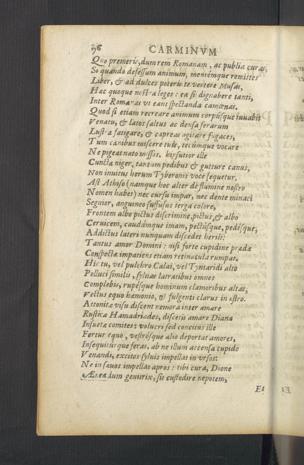 96 CARMINVM
Quo premeris, dum rem Romanam, ac publica curas,
So quando defessum animum, mentemque remittes
Liber, & ad dulces poteris te vertere Musas,
Hac quoque nostra leges: ea si dignabere tanti,
Inter Romanas vt eant spectanda camœnas.
Quod si etiam recreare animum corpúsque iuuabit
Venatu, & latos saltus ac densa ferarum
Lustra fatigare, & capreas agitare fugaces,
Tum canibus miscere rudes, tecúmque vocare
Ne pigeat nato missos. hirsutor ille
Cuncta niger, tantum pedibus & gutture canus,
Non inuitus herum Tyboronis voce sequetur,
Ast Athuso (namque hoc alter de flumine nostro
Nomen habet) nec cursu impar, nec dente minaci
Segnior, anguineo suffusus terga colore,
Frontem albo pictus discrimine, pictus, & albo
Ceruicem, caudámque imam, pectúsque, pedésque,
Addictus lateri nunquam discedet herili;
Tantus amor Domini: nisi forte cupidine præda
Conspecta impatiens etiam retinacula rumpas.
Hic tu, vel pulchro Calai, vel Tymaridi alto
Pelluci simili, siluas latratibus omnes
Complebis, rupésque hominum clamoribus altas,
Vectus equo humanis, & fulgenti clarus in ostro.
Attonita visu discent nemora inter amare
Rustica Hamadriades, disceris amare Diana
Insueta comites: volucri sed concitus ille
Fertur equo, vestrósque alio deportat amores,
Insequitúrque feras, ab ne illum accensa cupido
Venandi, excitos syluis impellat in vrsos:
Ne in sauos impellat apros: tibi cura, Dione
Æneadum genitrix, sit custodire nepotem,
Et